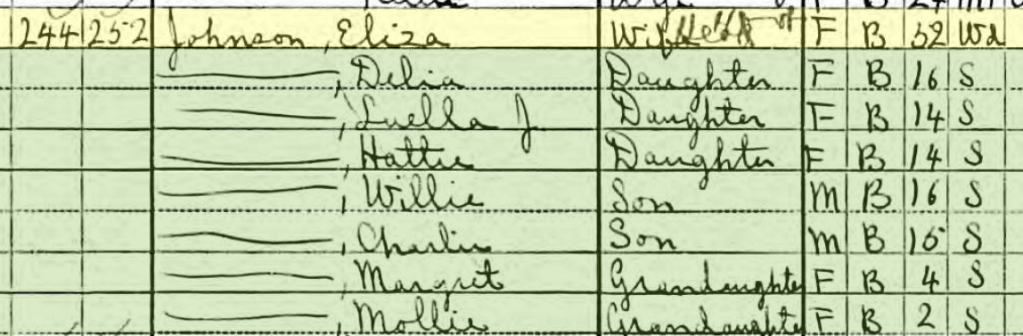 244 252 Johnson, Eliza Wife Head F B 52 Wd
———, Delia Daughter F B 16 S
———, Luella J. Daughter F B 14 S
———, Hattie Daughter F B 14 S
———, Willie Son M B 16 S
———, Charlie Son M B 15 S
———, Margret Grandaughter F B 4 S
———, Mollie Grandaughter F B 2 S